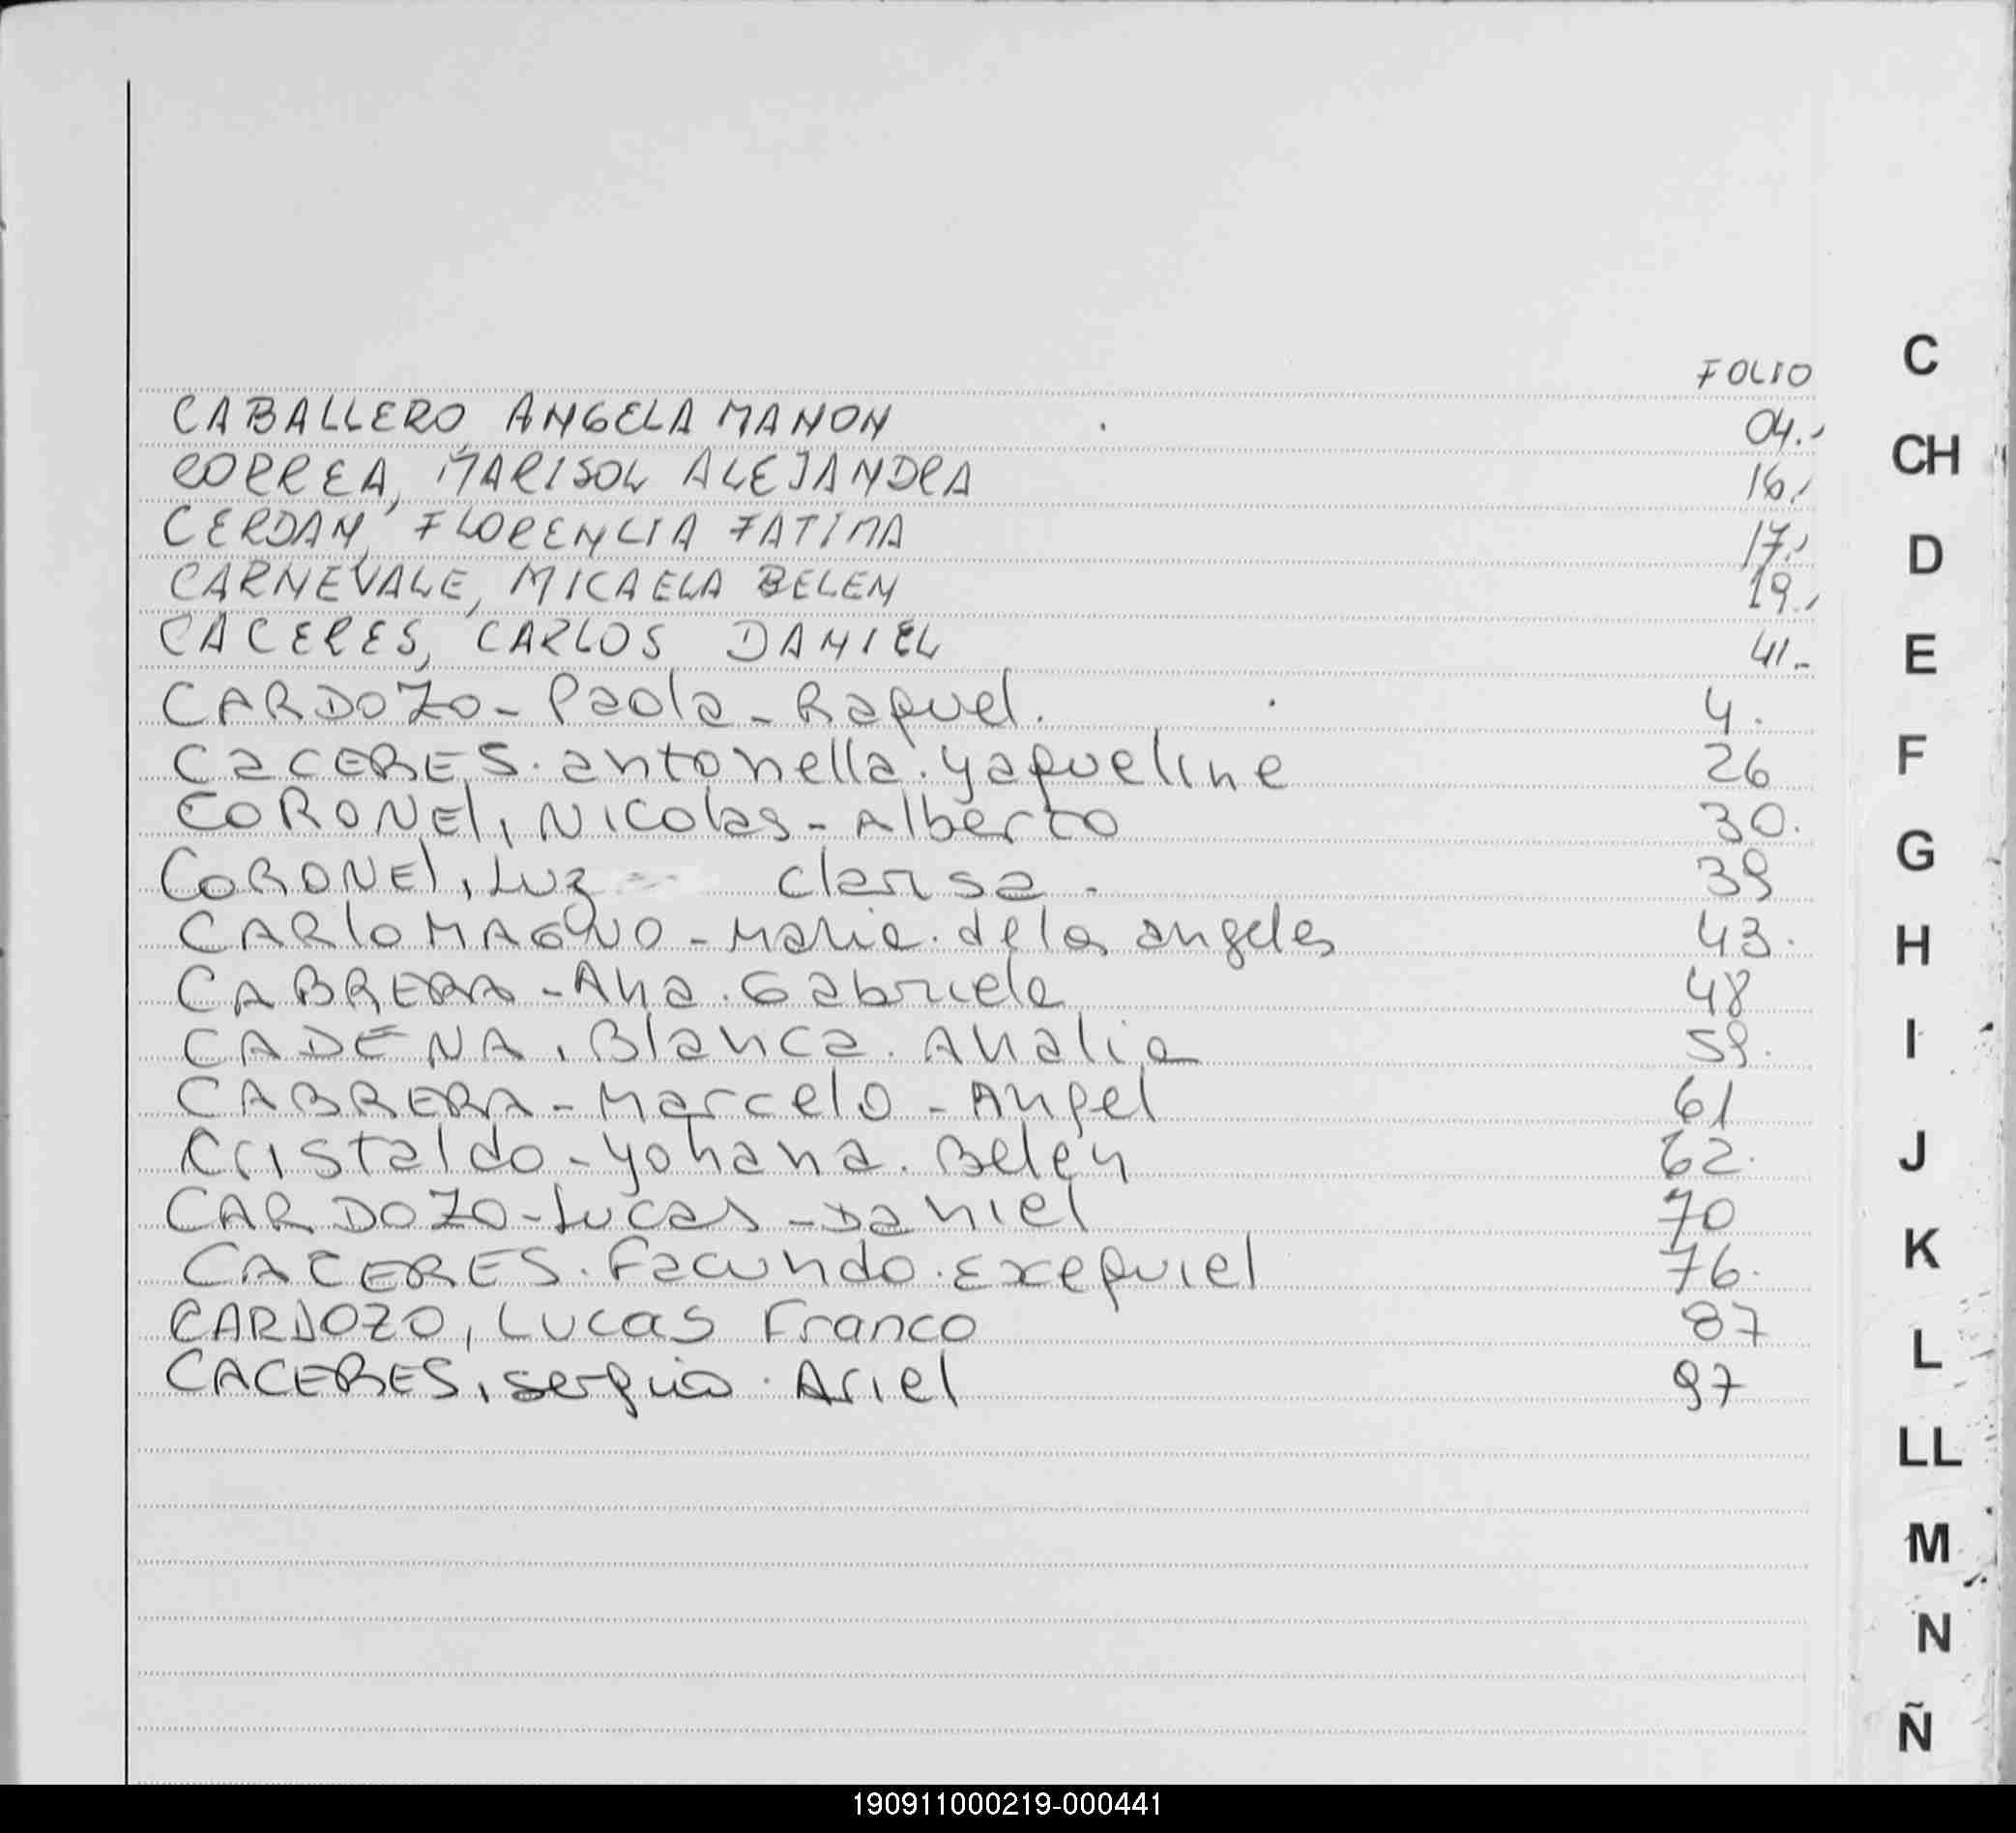 FOLIO
CABALLERO, ANGELA MANON 04.-
CORREA, MARISOL ALEJANDRA 16.-
CERDAN, FLORENCIA FATIMA 17.-
CARNEVALE, MICAELA BELEN 19.-
CACERES, CARLOS DANIEL 41.-
CARDOZO - Paola - Raquel. 4.
CaCERES. antonella. yaqueline 26
CORONEl, Nicolas - Alberto 30.
CORONEl, Luz Clarisa. 39
CARloMAGNO - Maria. delos angeles 43.
CABRERA - Ana. Gabriela 48
CADENA, Blanca. Analia 59.
CABRERA - Marcelo - Angel 61
Cristaldo - yohana. Belen 62.
CARDOZO - Lucas - Daniel 70
CACERES. Facundo. Exequiel 76.
CARDOZO, Lucas Franco 87
CACERES, sergio. Ariel 97
C
CH
D
E
F
G
H
I
J
K
L
LL
M
N
Ñ
190911000219-000441